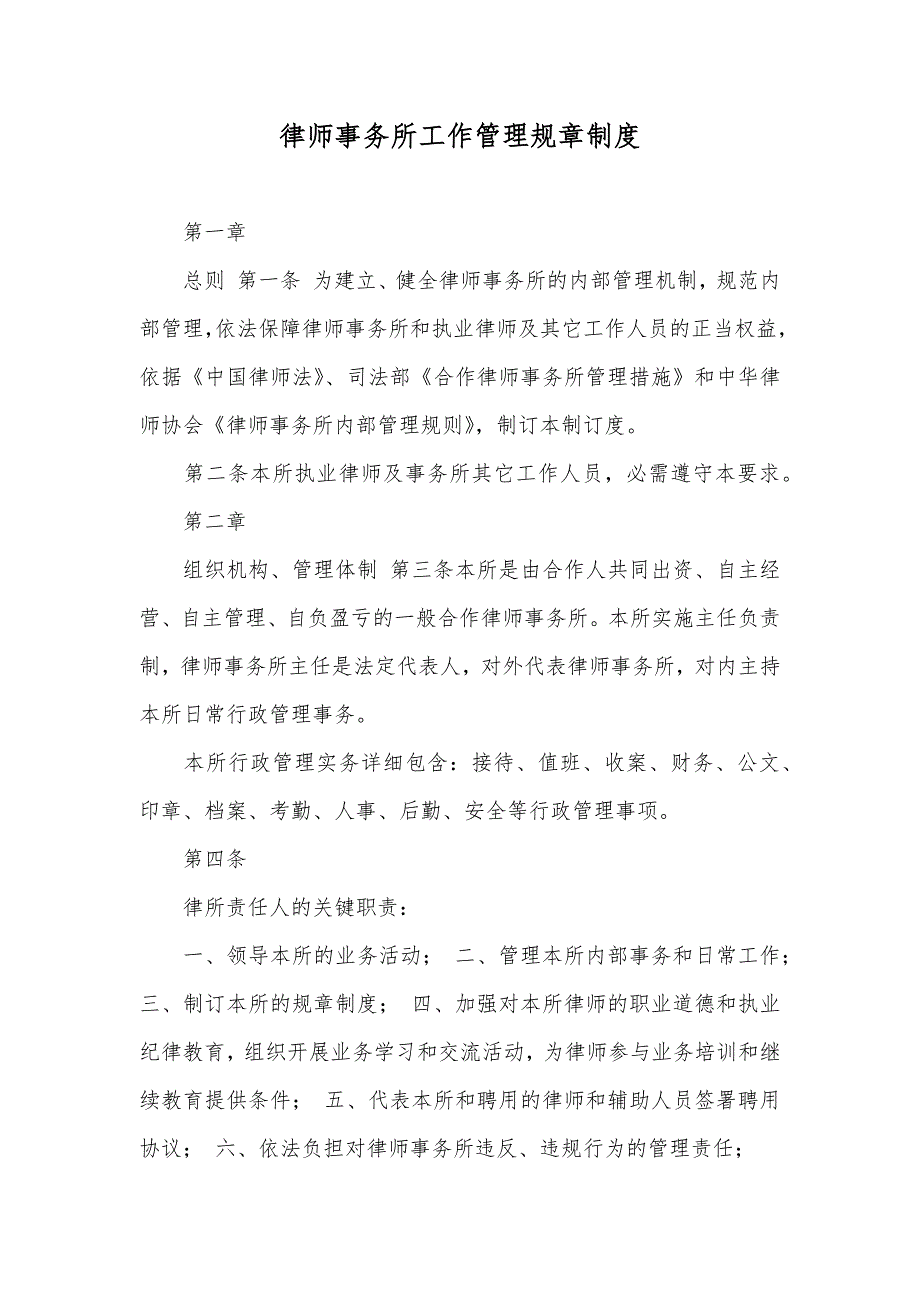 律师事务所工作管理规章制度
第一章
总则 第一条 为建立、健全律师事务所的内部管理机制，规范内
部管理，依法保障律师事务所和执业律师及其它工作人员的正当权益，
依据《中国律师法》、司法部《合作律师事务所管理措施》和中华律
师协会《律师事务所内部管理规则》，制订本制订度。
第二条本所执业律师及事务所其它工作人员，必需遵守本要求。
第二章
组织机构、管理体制 第三条本所是由合作人共同出资、自主经
营、自主管理、自负盈亏的一般合作律师事务所。本所实施主任负责
制，律师事务所主任是法定代表人，对外代表律师事务所，对内主持
本所日常行政管理事务。
本所行政管理实务详细包含：接待、值班、收案、财务、公文、
印章、档案、考勤、人事、后勤、安全等行政管理事项。
第四条
律所责任人的关键职责：
一、领导本所的业务活动； 二、管理本所内部事务和日常工作；
三、制订本所的规章制度； 四、加强对本所律师的职业道德和执业
纪律教育，组织开展业务学习和交流活动，为律师参与业务培训和继
续教育提供条件； 五、代表本所和聘用的律师和辅助人员签署聘用
协议； 六、依法负担对律师事务所违反、违规行为的管理责任；